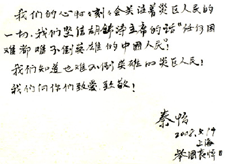 我们的心时刻会关注着灾区人民的
一切，我们坚信胡锦涛主席的话“任何困
难都难不倒英雄的中国人民”！
我们知道也难不倒英雄的灾区人民！
我们向你们致爱、致敬！
秦怡
2008.5.19
上海